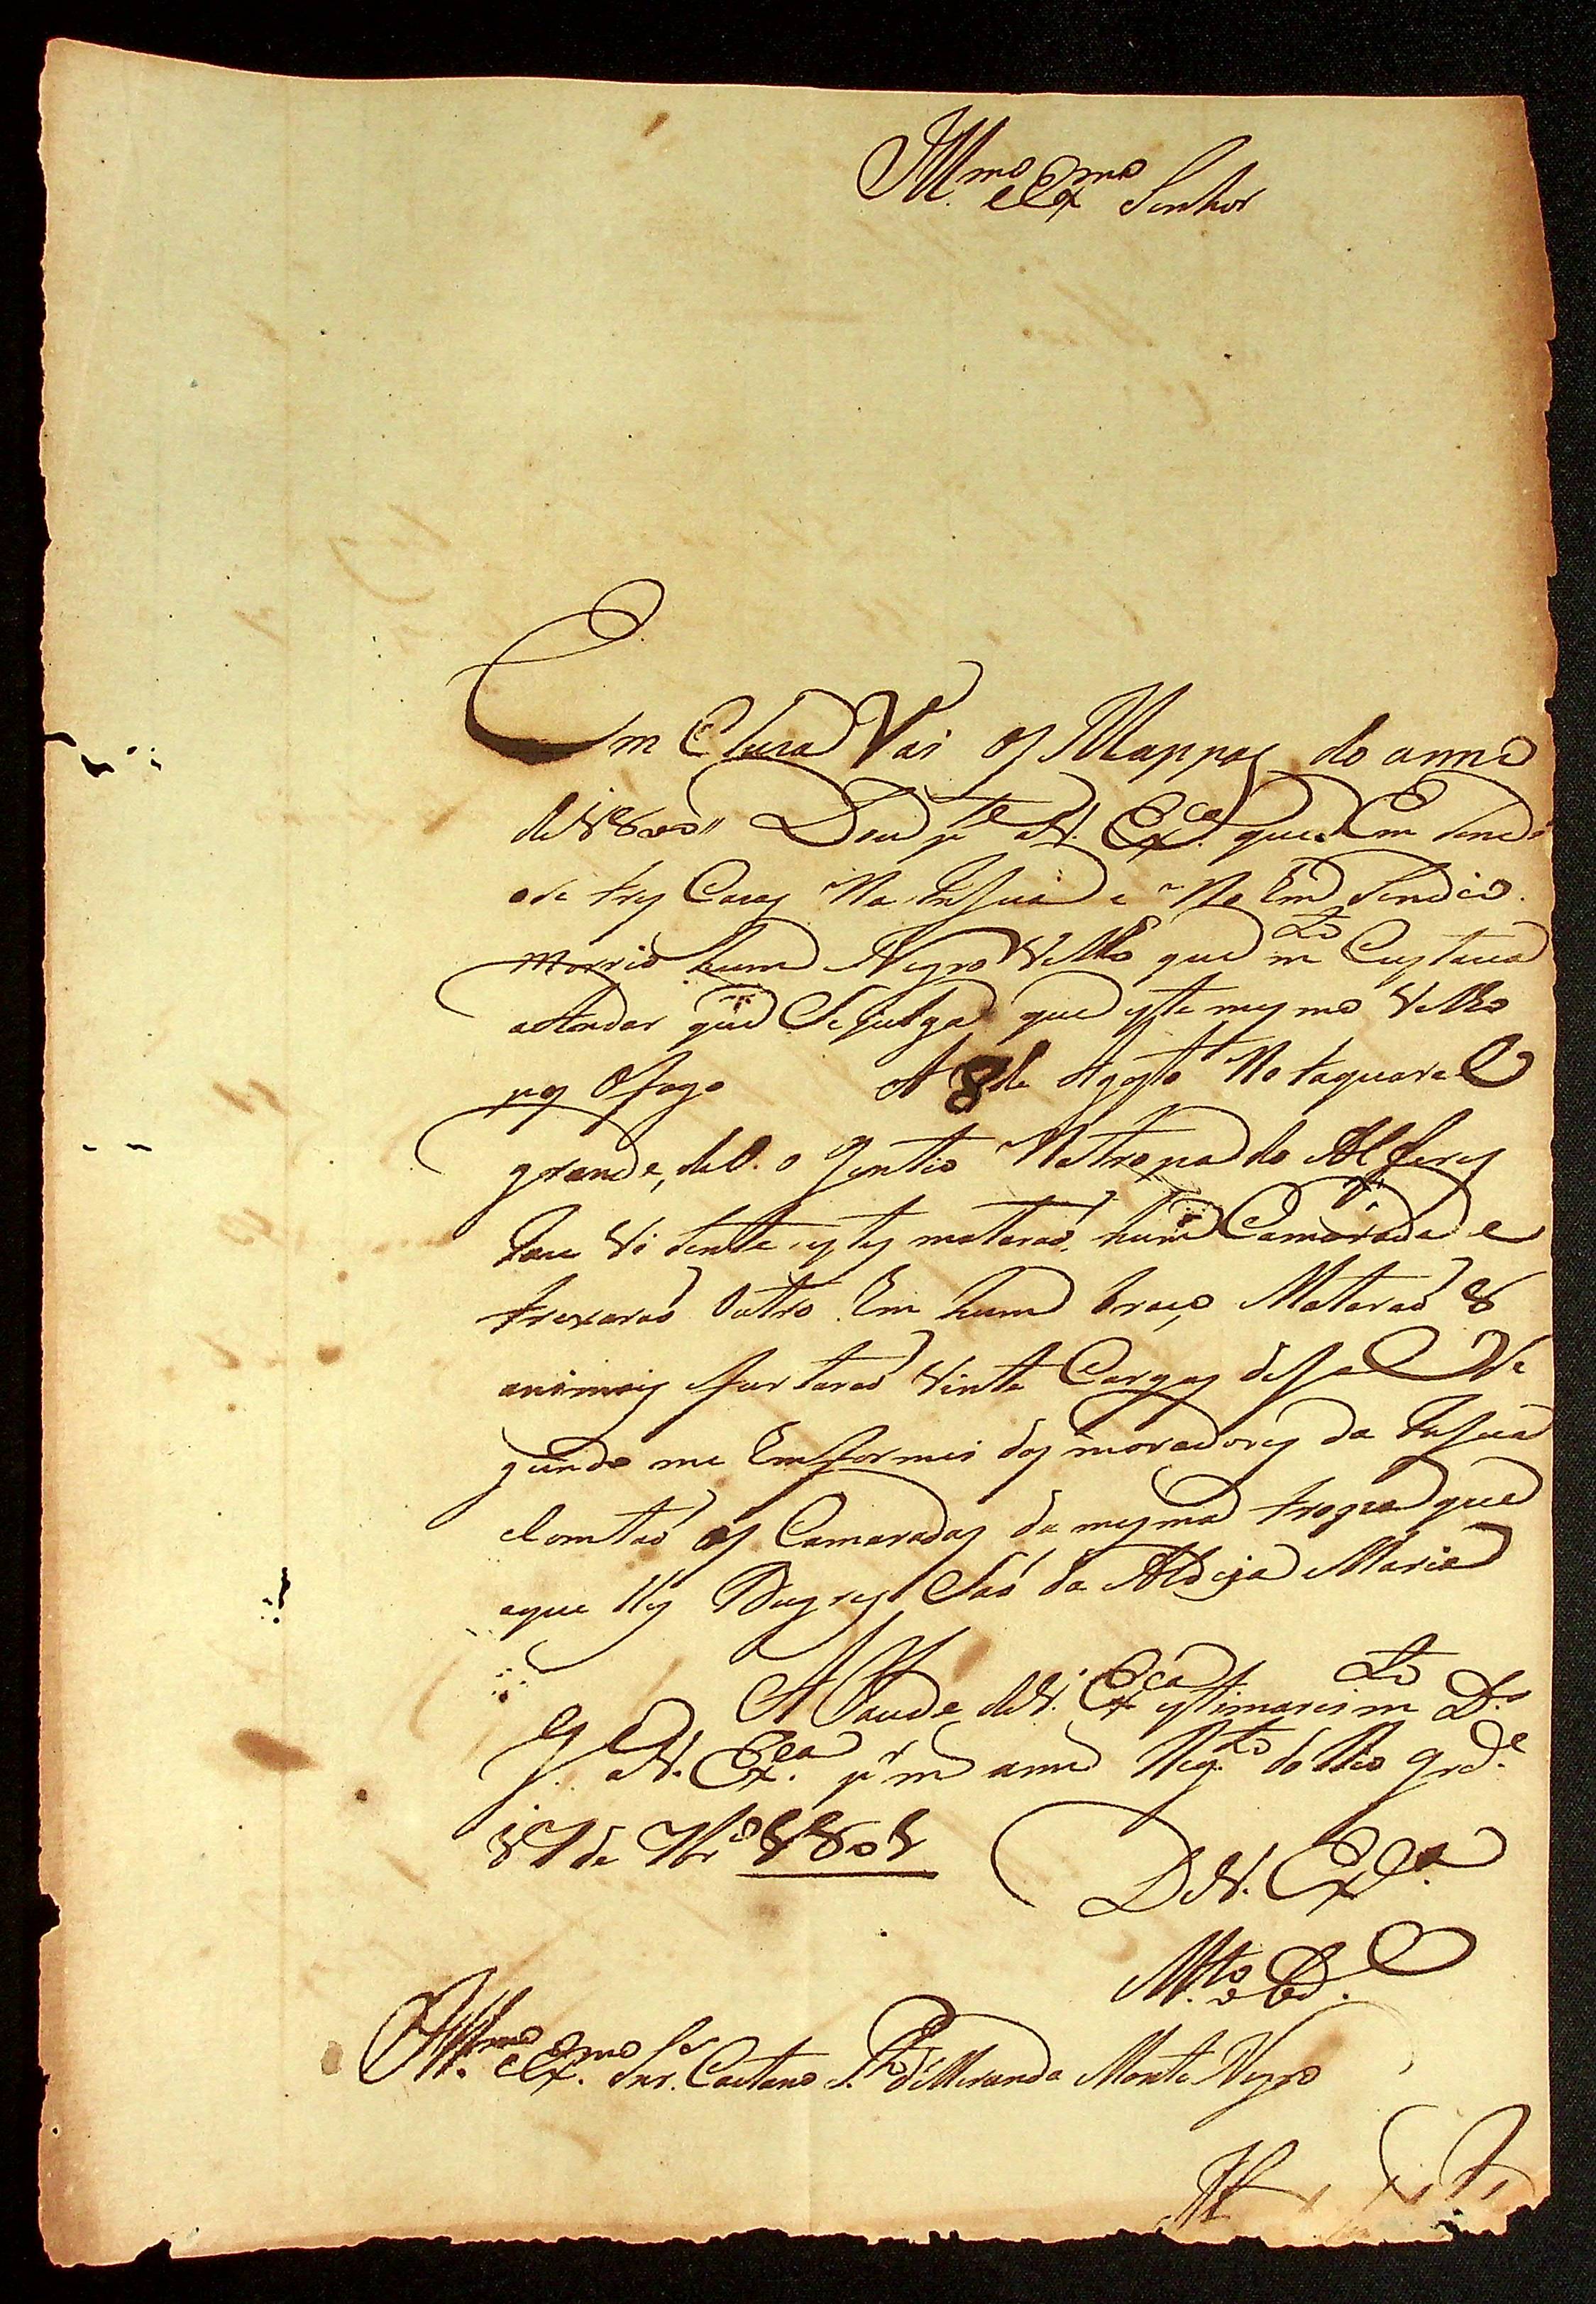 Ill.mo e Ex.mo Senhor
Em Cluza Vai os Mappas do anno
de 1800 Dou p.te a V. Ex.ca que Em Sendi
ose tres Cazas Na Insua e No Em Sendio
morrio hum Negro Velho que m.to Custava
a Andar que Se julga que este mesmo Velho
pos O fogo A 8 de Agosto No taquaral
grande, deo o Gentio Na tropa do Alferes
Joze Vi Sente estes matarao hum Camarada e
frexarao Outro Em hum braço, Matarao 8
animais furtarao Vinte Cargas de Sal Se
gundo me Emformei dos moradores da Insua
e Contao os Camaradas da mesma tropa que
aque lles Bugres Sao da Aldeja Maria
A Saude de V. Ex.ca estimarei m.to D.s
G. a V. Ex.ca p.r m anno Reg.to do Rio grd.e
17 de 7br.o 1801
De V. Ex.ca
M.to Obd.e
Ill.mo e Ex.mo Snr. Caetano P.to de Meranda Monte Negro